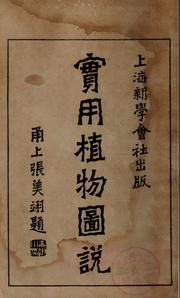 上海新學會社出版
實用植物圖説
甬上張美翊題